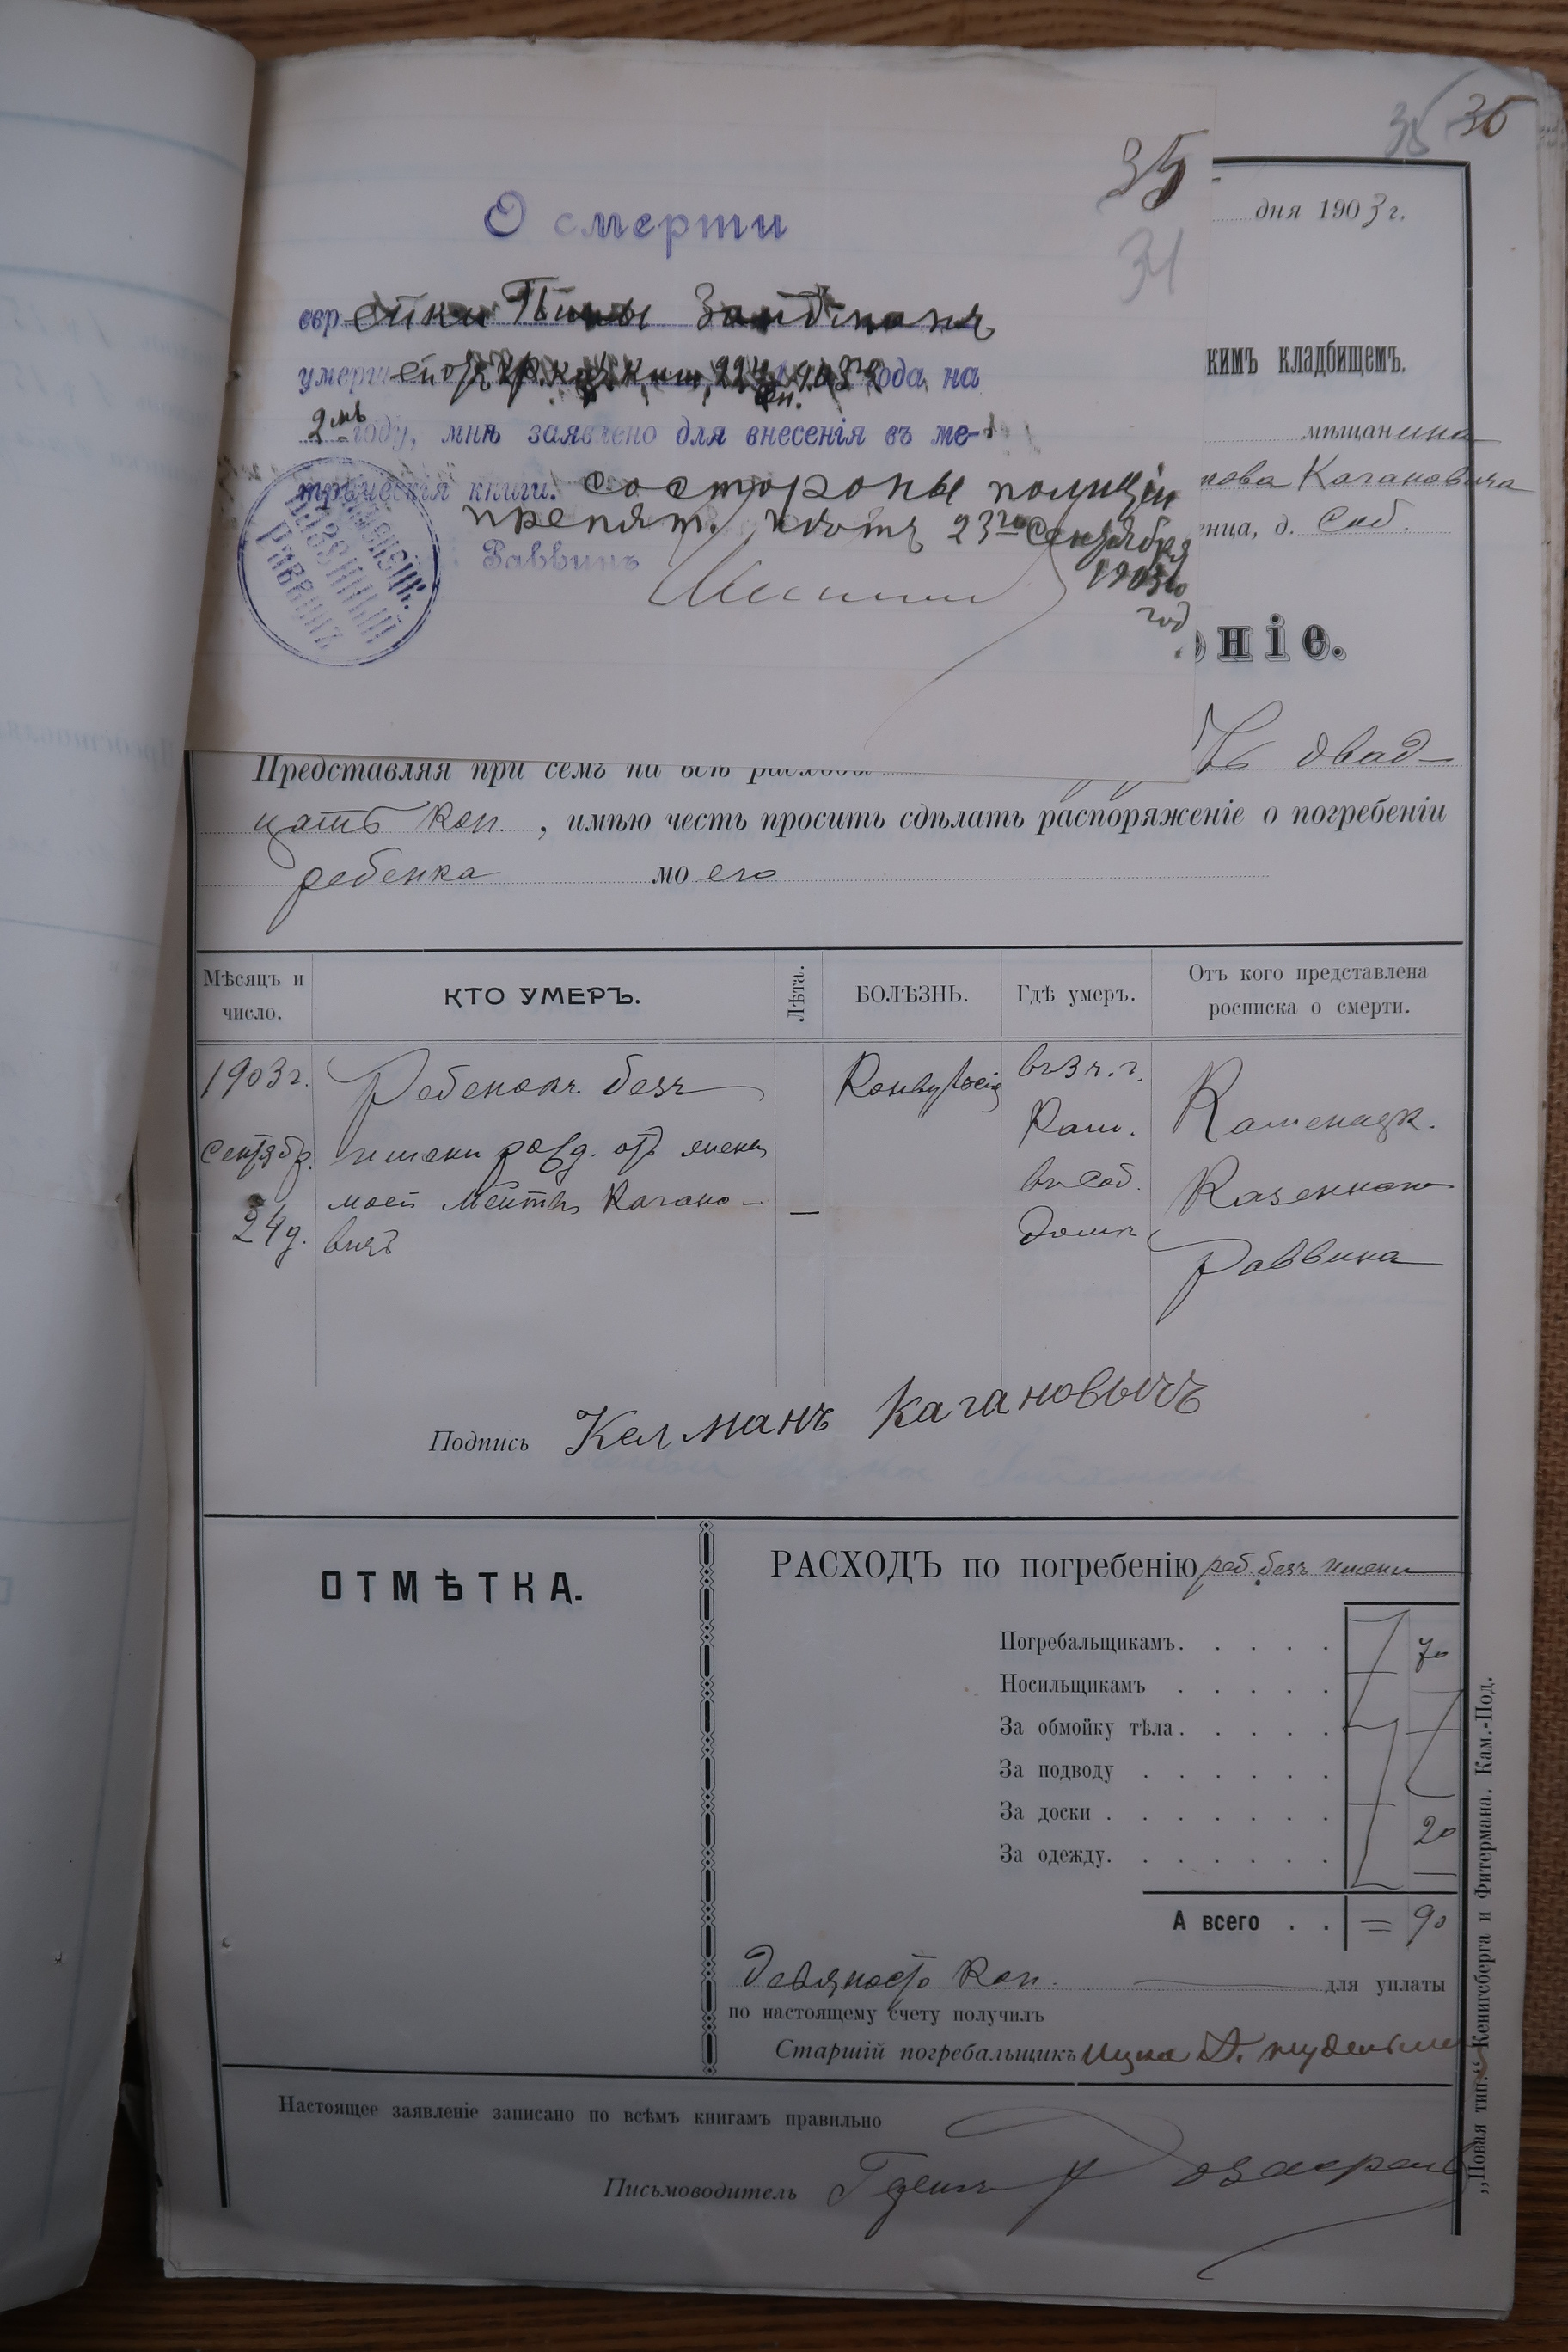 35 36
35
34
дня 1903 г.
О смерти
еврейки Зайдманъ
умерш года, на
2 году, мнѣ заявлено для внесенія въ ме-
трическія книги. Со стороны полиціи
препят. нѣтъ 23го Сентября
1903го
год
Раввинъ
Каменецк.
Казенный
Раввинъ
кимъ кладбищемъ.
мѣщанина
нова Кагановича
енца, д. Соб.
еніе.
двад-
Представляя при семъ на всѣ расходы
цать коп. , имѣю честь просить сдѣлать распоряженіе о погребеніи
ребенка моего
Мѣсяцъ и число.
КТО УМЕРЪ.
Лѣта.
БОЛѢЗНЬ.
Гдѣ умеръ.
Отъ кого представлена росписка о смерти.
1903 г.
Сентябр.
24 д.
Ребенокъ безъ
имени рожд. отъ жены
моей Кагано-
вичъ
—
Конвульсія
въ 3 ч. г.
Кам.
въ соб.
домѣ
Каменецк.
Казеннаго
Раввина
Подпись Келманъ Кагановычъ
ОТМѢТКА.
РАСХОДЪ по погребенію реб. безъ имени
Погребальщикамъ. . . . . 70
Носильщикамъ . . . . .
За обмойку тѣла . . . . .
За подводу . . . . . .
За доски . . . . . . . 20
За одежду. . . . . . .
А всего . . = 90
Девяносто коп. для уплаты
по настоящему счету получилъ
Старшій погребальщикъ Ицка
Настоящее заявленіе записано по всѣмъ книгамъ правильно
Письмоводитель
„Новая тип.“ Кенигсберга и Фитермана. Кам.-Под.